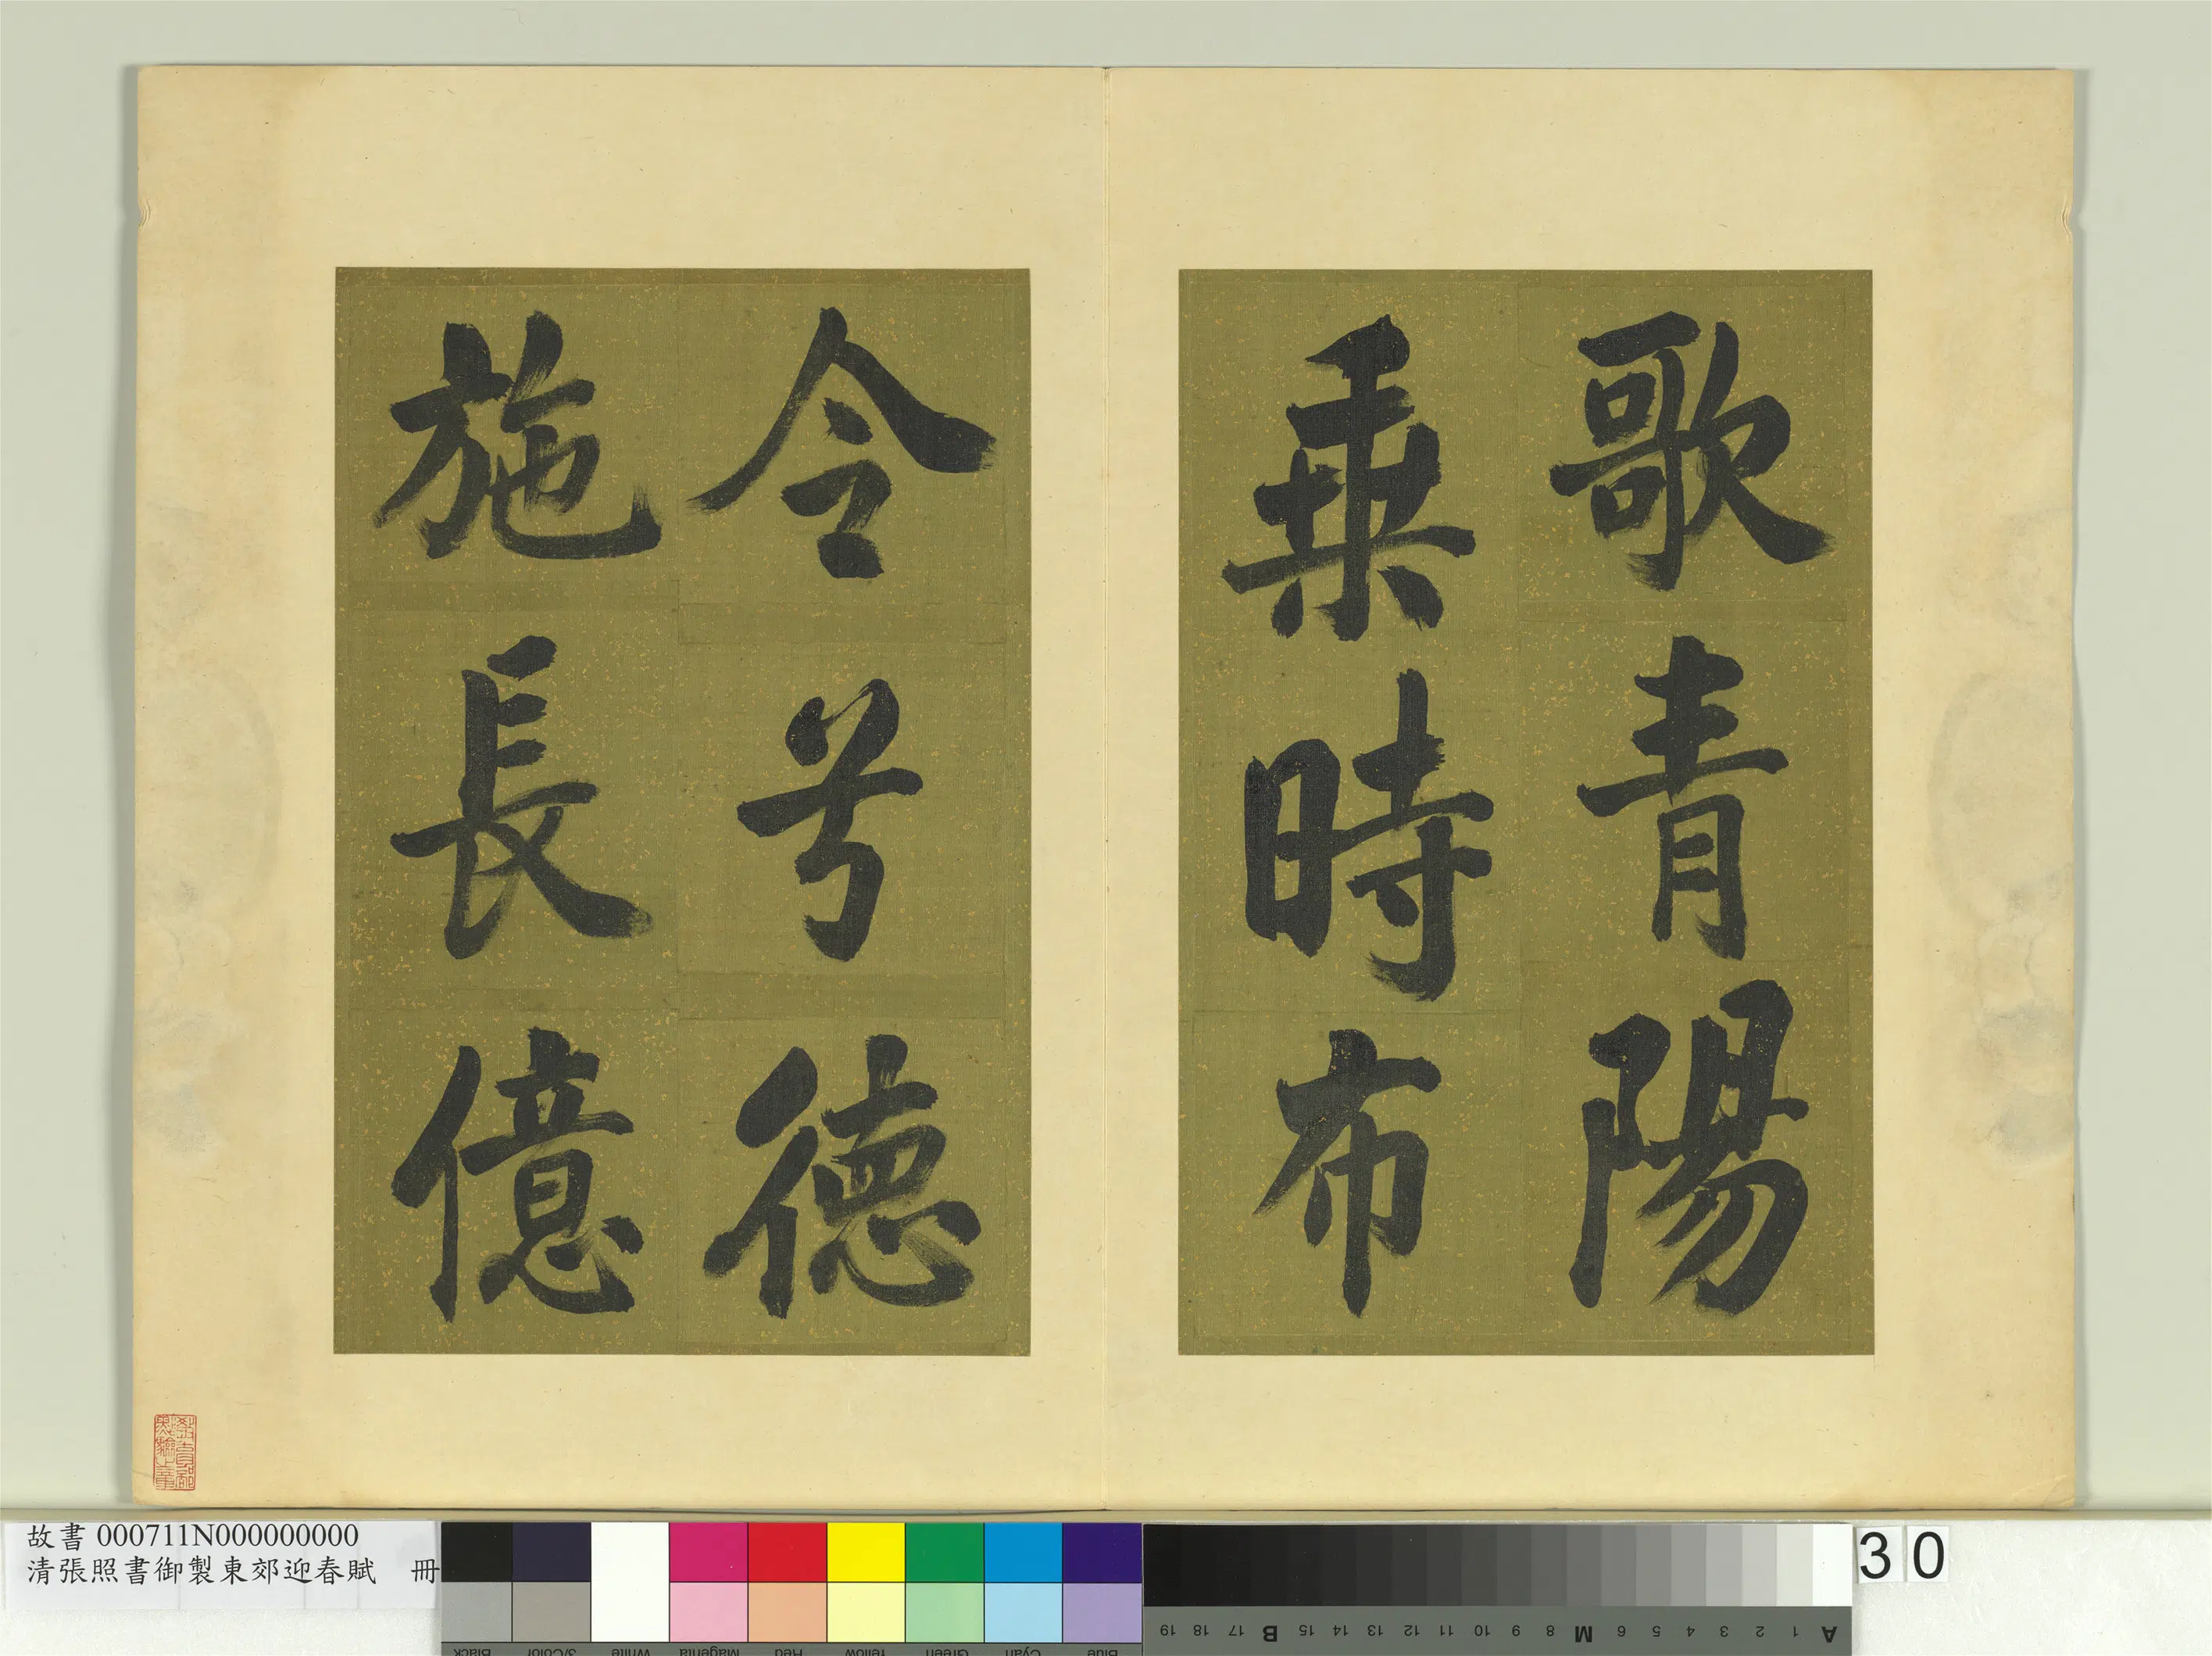 歌青陽
乗時布
令兮德
施長億
教育部
點驗之章
故書 000711N000000000
清張照書御製東郊迎春賦 冊
30
Black 3/Color White Magenta Red Yellow Green Cyan Blue
A 1 2 3 4 5 6 M 8 9 10 11 12 13 14 15 B 17 18 19